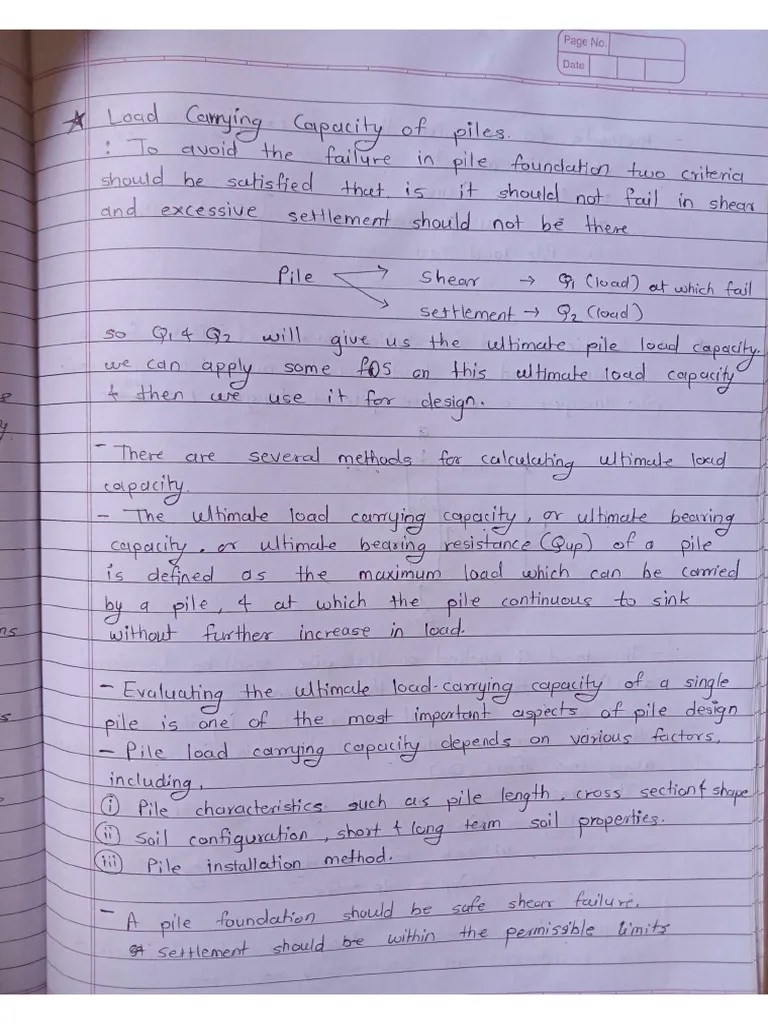 Page No.
Date
Load Carrying Capacity of piles.
: To avoid the failure in pile foundation two criteria
should be satisfied that is it should not fail in shear
and excessive settlement should not be there
Pile → Shear → Q1 (load) at which fail
→ settlement → Q2 (load)
so Q1 & Q2 will give us the ultimate pile load capacity.
we can apply some fOS on this ultimate load capacity
& then we use it for design.
- There are several methods for calculating ultimate load
capacity.
- The ultimate load carrying capacity, or ultimate bearing
capacity, or ultimate bearing resistance (Qup) of a pile
is defined as the maximum load which can be carried
by a pile, & at which the pile continuous to sink
without further increase in load.
- Evaluating the ultimate load-carrying capacity of a single
pile is one of the most important aspects of pile design
- Pile load carrying capacity depends on various factors,
including,
(i) Pile characteristics such as pile length, cross section & shape
(ii) Soil configuration, short & long term soil properties.
(iii) Pile installation method.
- A pile foundation should be safe shear failure.
settlement should be within the permissible limits